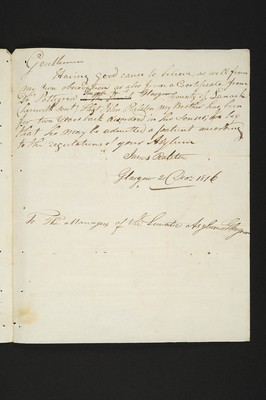 Gentlemen
Having good cause to believe as well from
my own observation as also from a Certificate from
Glasgow County of Lanark
herewith sent that John my Brother has been
for two years back disordered in his Senses, I
that he may be admitted a patient according
to the regulations of your Asylum
James
Glasgow 2 Decr. 1816
To The Managers of the Lunatic Asylum Glasgow